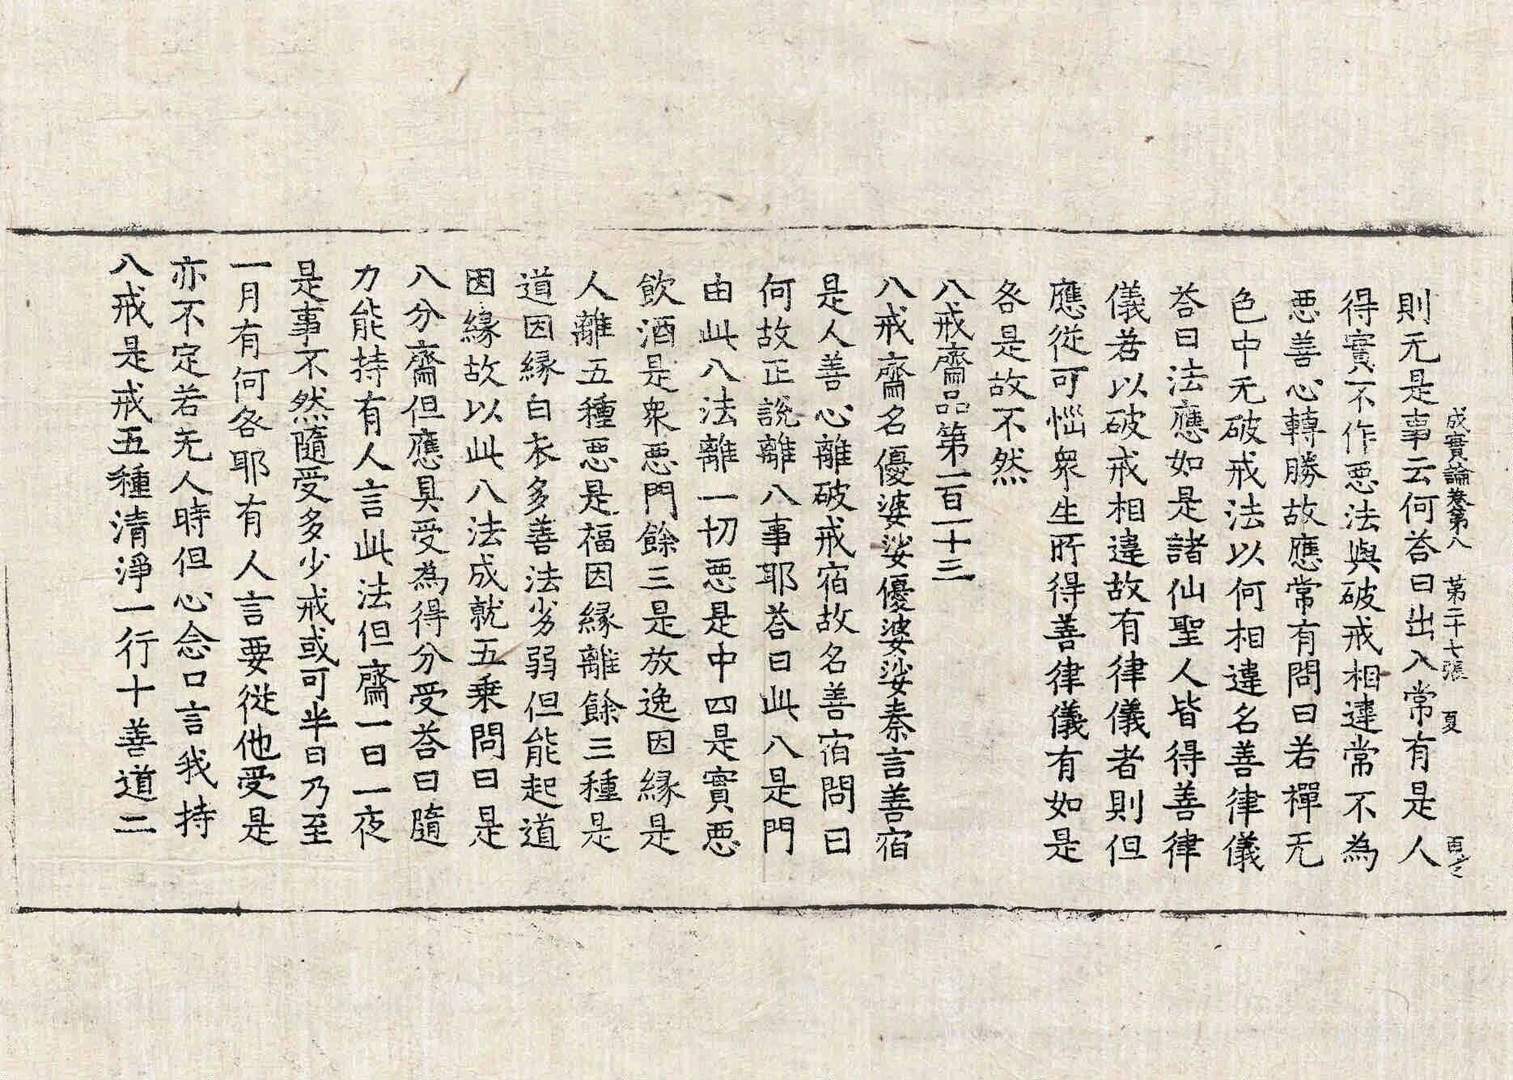 成實論卷第八　第二十七張　夏
則无是事云何荅曰出入常有是人
得實不作惡法與破戒相違常不為
惡善心轉勝故應常有問曰若禪无
色中无破戒法以何相違名善律儀
荅曰法應如是諸仙聖人皆得善律
儀若以破戒相違故有律儀者則但
應從可惱衆生所得善律儀有如是
各是故不然
八戒齋品第一百一十三
八戒齋名優婆娑優婆娑秦言善宿
是人善心離破戒宿故名善宿問曰
何故正說離八事耶荅曰此八是門
由此八法離一切惡是中四是實惡
飲酒是衆惡門餘三是放逸因緣是
人離五種惡是福因緣離餘三種是
道因緣白衣多善法劣弱但能起道
因緣故以此八法成就五乘問曰是
八分齋但應具受為得分受荅曰隨
力能持有人言此法但齋一日一夜
是事不然隨受多少戒或可半日乃至
一月有何各耶有人言要從他受是
亦不定若无人時但心念口言我持
八戒是戒五種清淨一行十善道二